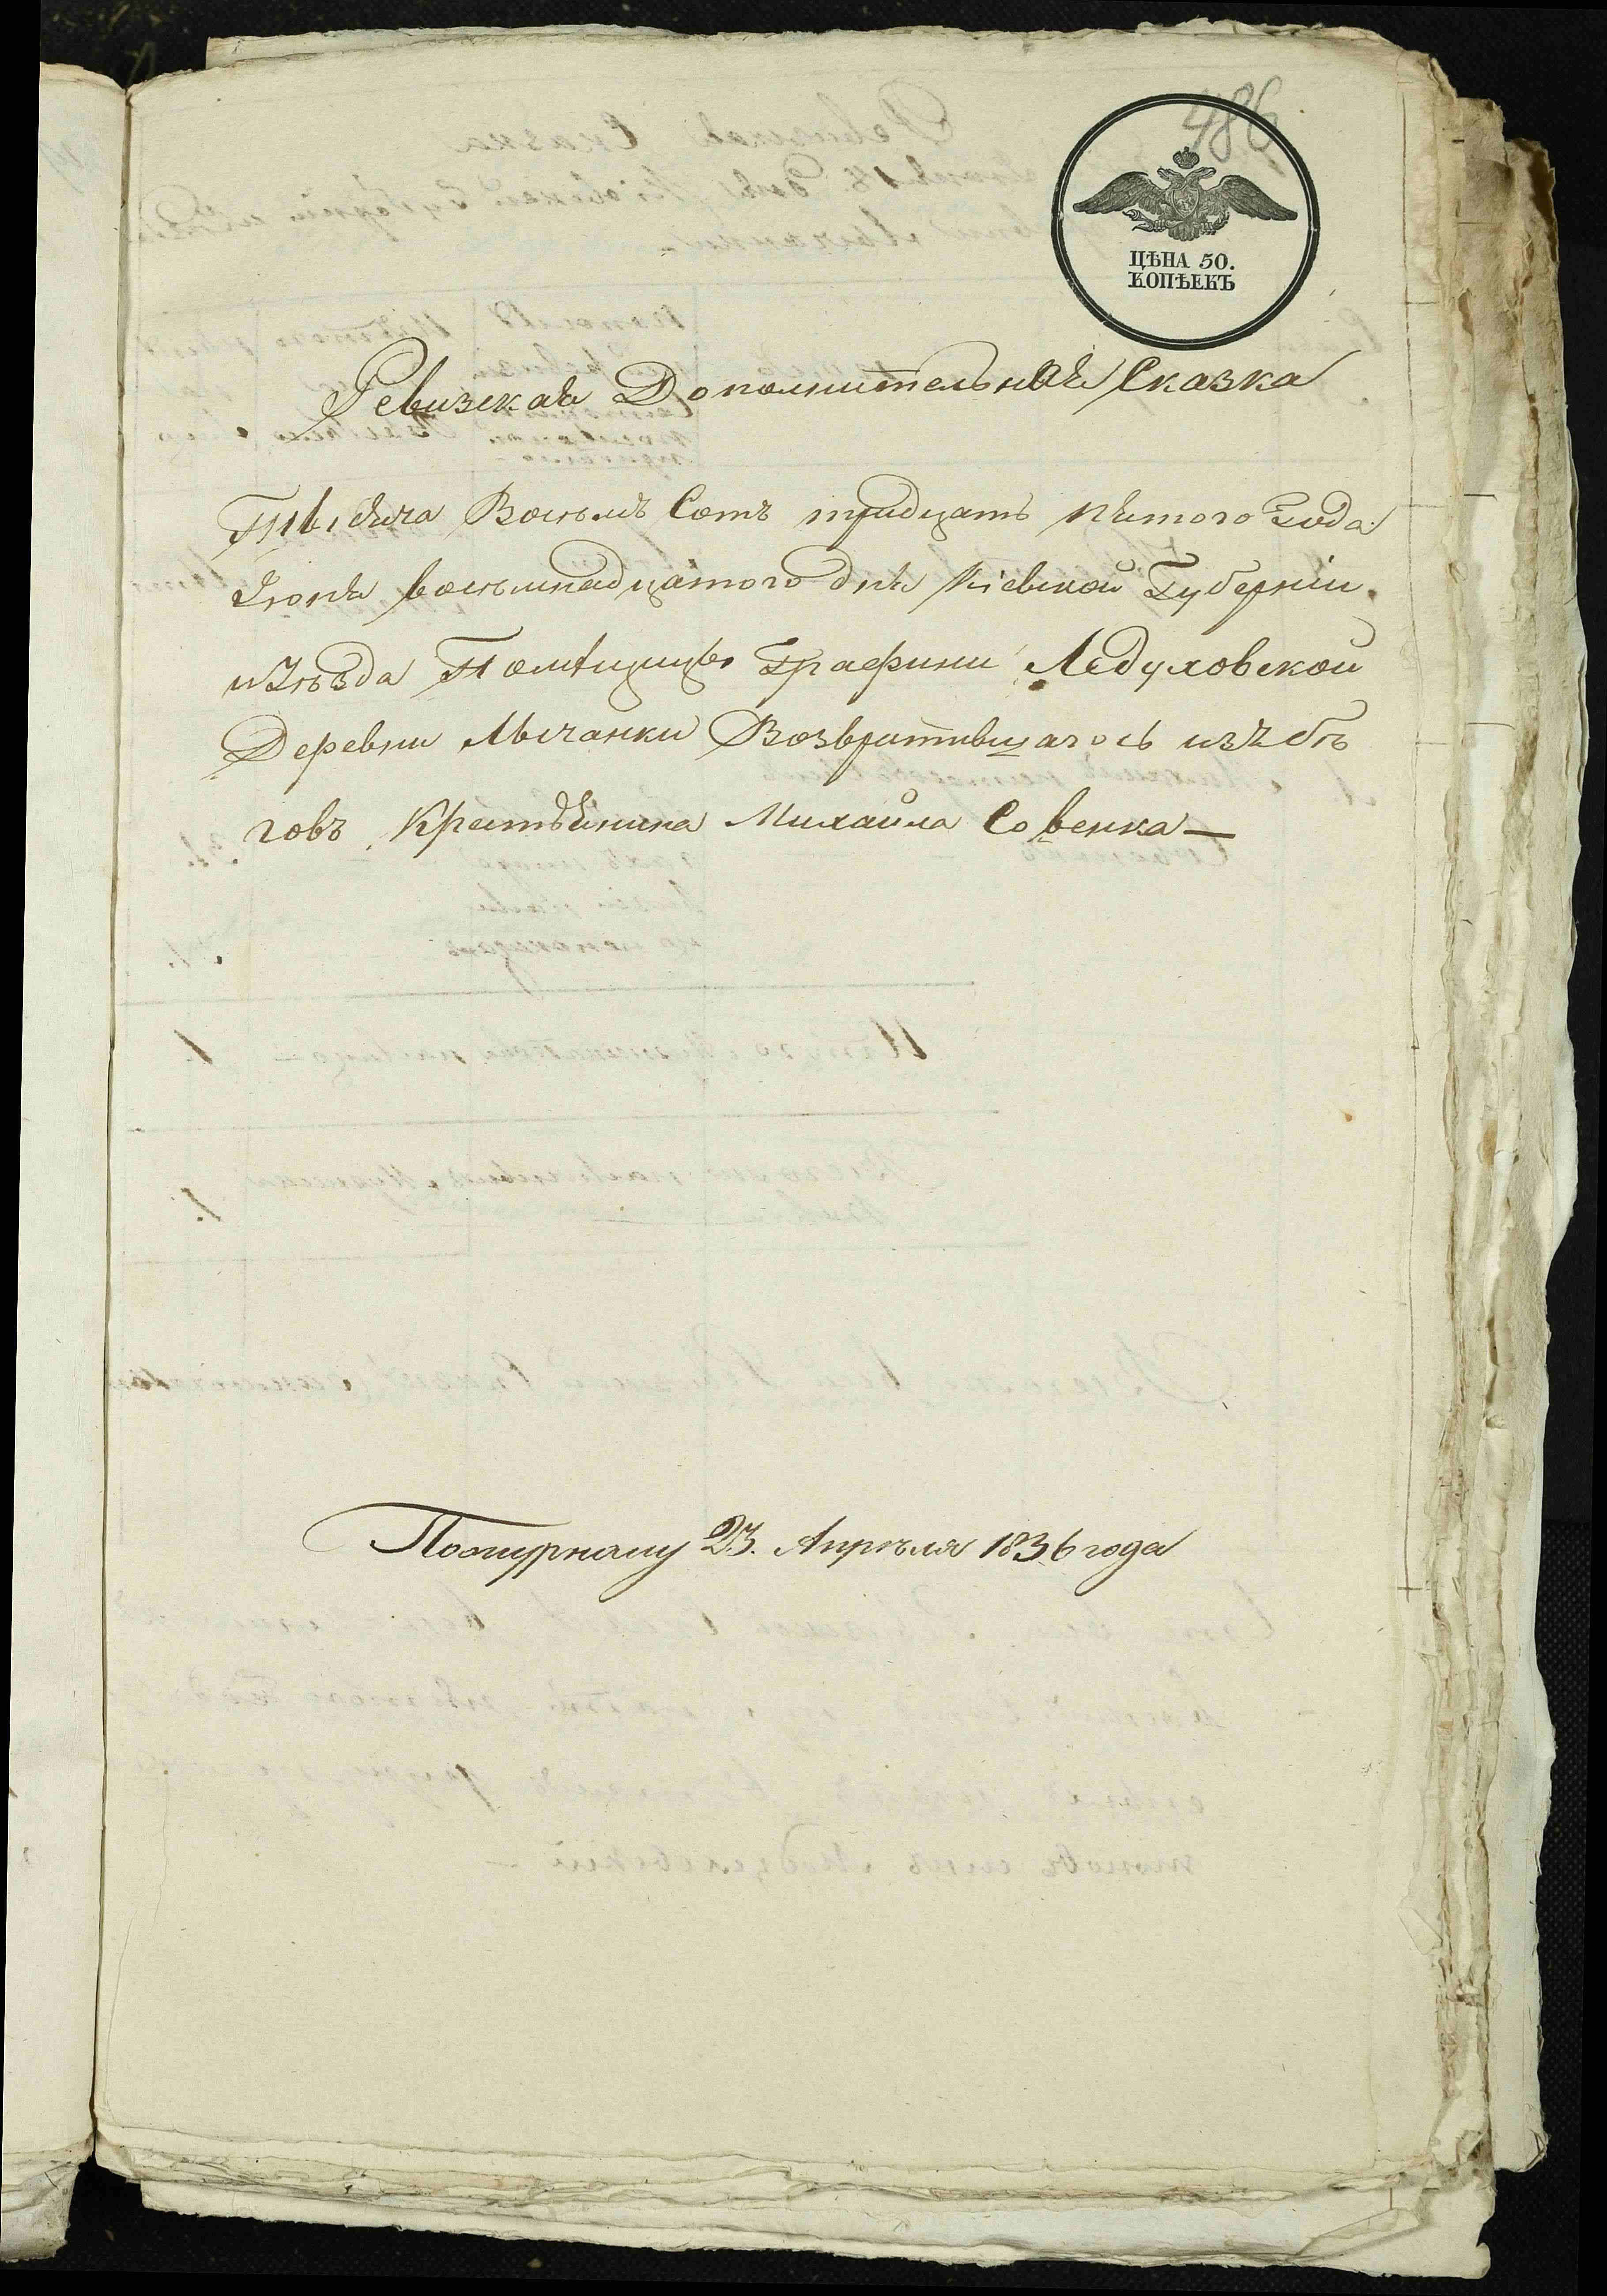 486
ЦѢНА 50.
КОПѢЕКЪ
Ревизская Дополнительная Сказка
Тысяча Восемь Сотъ тридцать пятого Года
Июня восемнадцатого дня Кіевской Губерніи
и Уѣзда Помѣщицы Графини Ледуховской
Деревни Мычанки Возвратившагось изъ бѣ
говъ Крестянина Михайла Совенка —
23. Апрѣля 1836 года